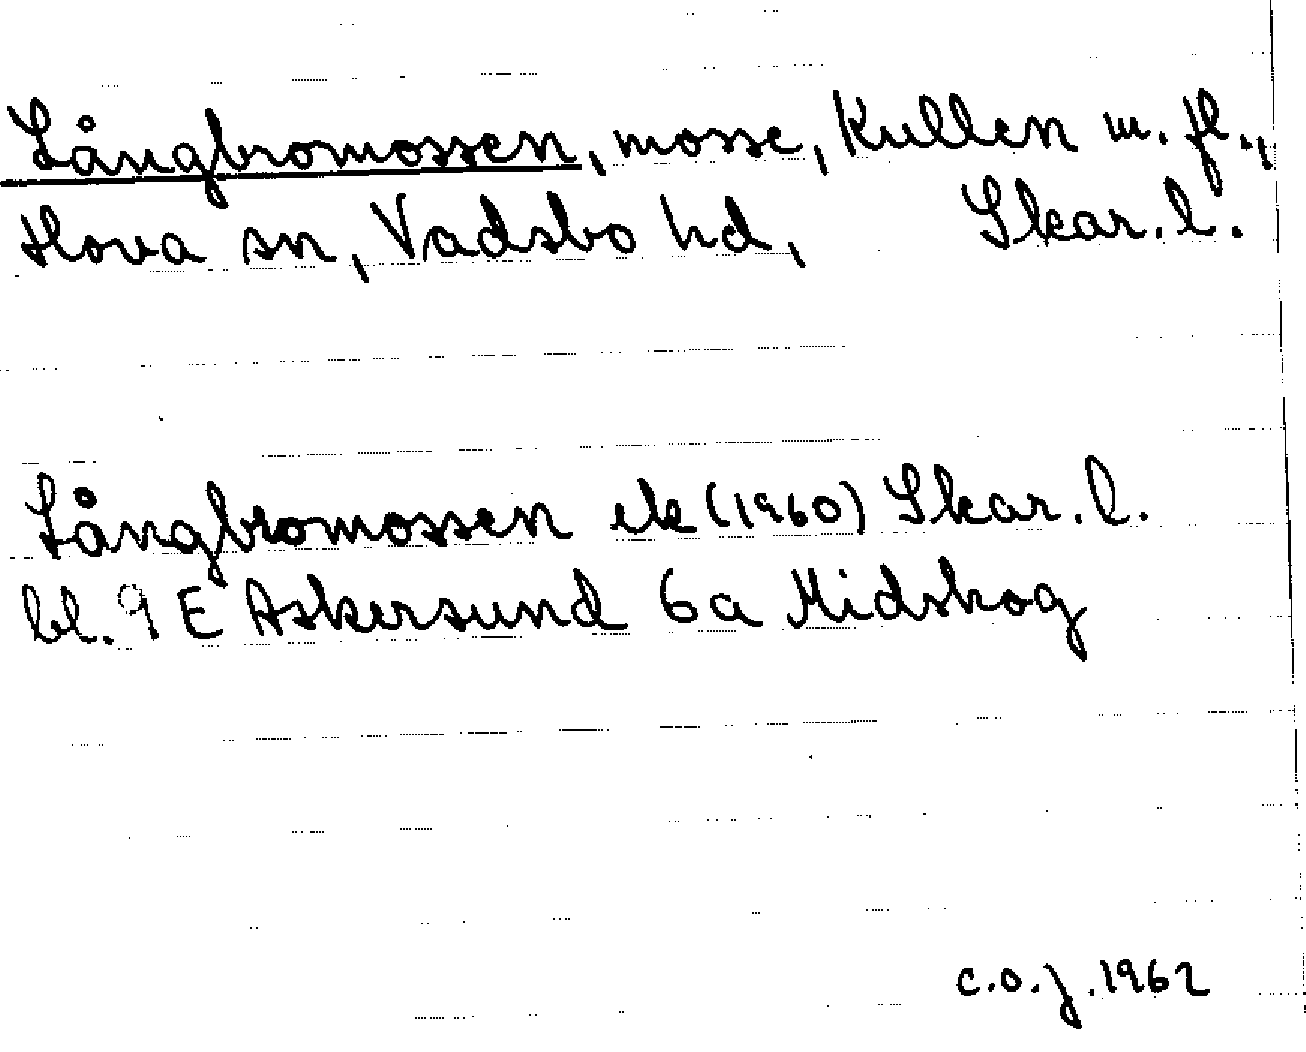 Långbromossen, mosse, Kullen m. fl.,
Hova sn, Vadsbo hd, Skar. l.
Långbromossen ek (1960) Skar. l.
bl. 9 E Askersund 6a Midskog
C.O.J. 1962